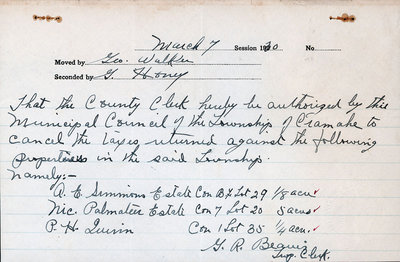 March 7 Session 1930 No
Moved by Geo. Walker
Seconded by G. Honey
That the County Clerk hereby be authorized by this
Municipal Council of the Township of Cramahe to
cancel the taxes returned against the following
properties in the said Township.
Namely:-
A. E. Simmons Estate Con B Lot 29 1/8 acre
Nic. Palmateer Estate Con 7 Lot 20 5 acres
P. H. Quinn Con 1 Lot 35 1/4 acre
G. R.
Twp. Clerk.